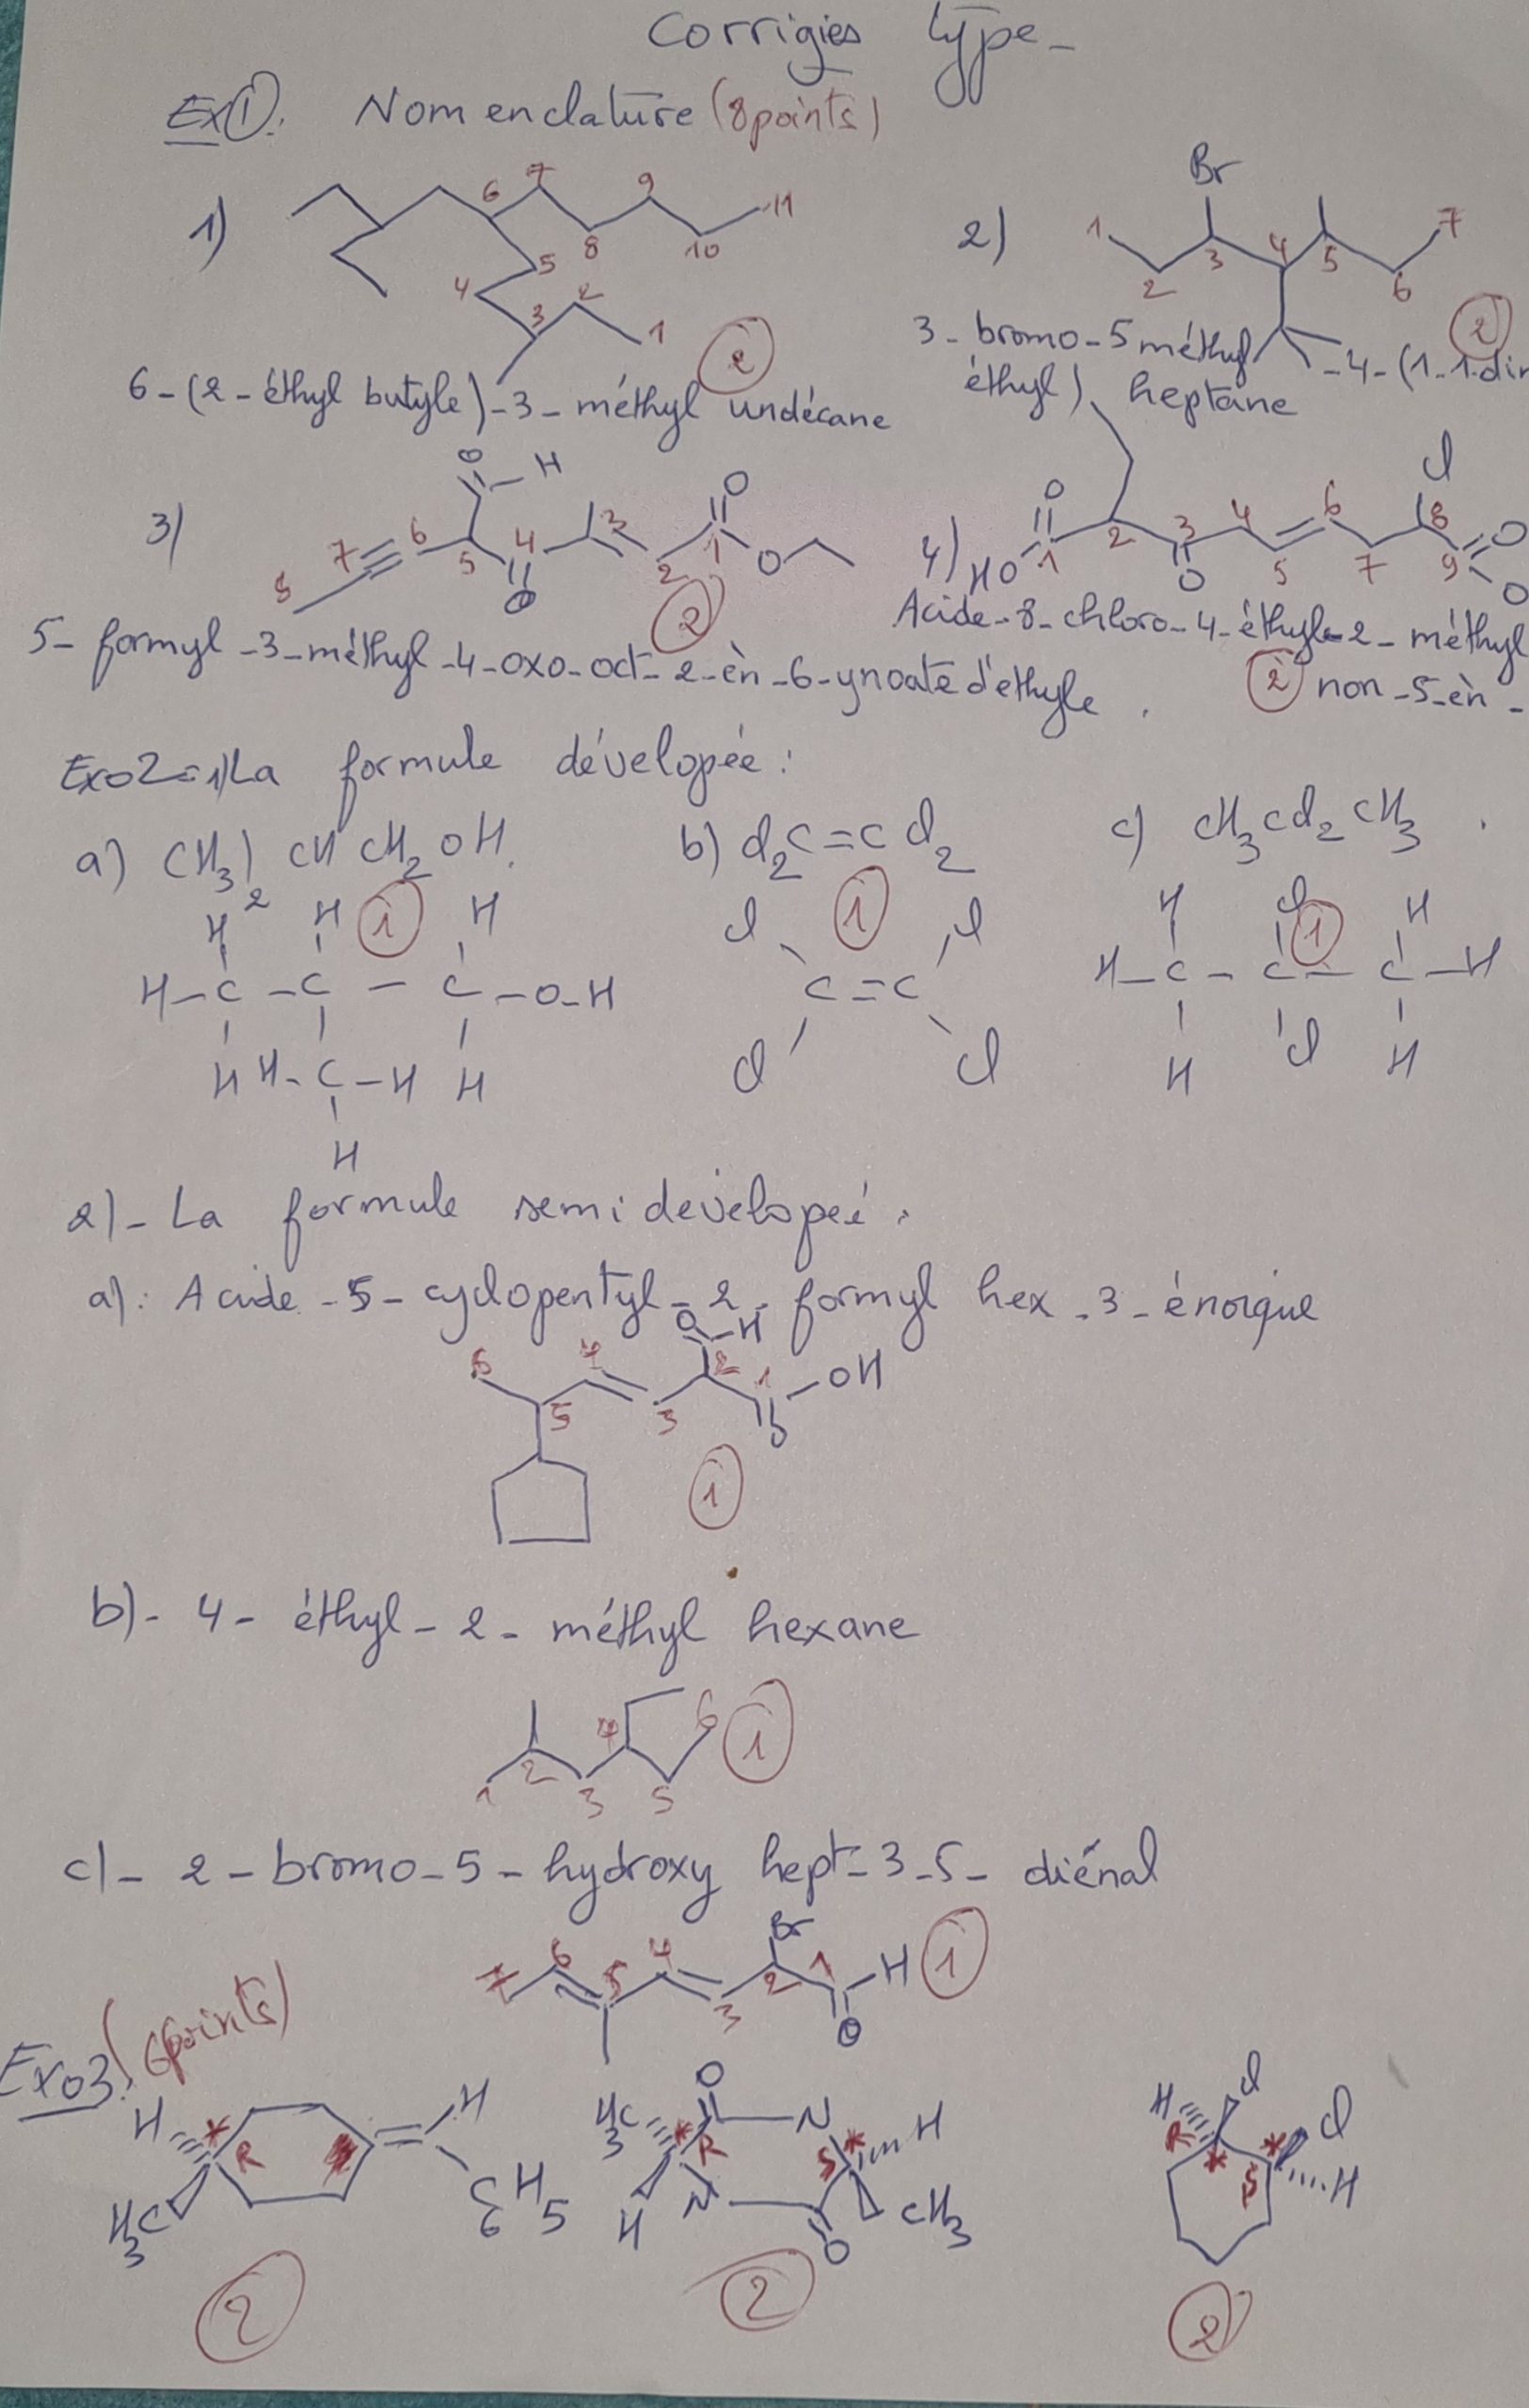 Corrigies type-
Ex①: Nomenclature (8points)
1) 6 7 8 9 10 11 5 4 3 2 1
6-(2-éthyl butyle)-3-méthyl undécane ②
2) Br 1 2 3 4 5 6 7
3-bromo-5 méthyl -4-(1-1-dim
éthyl) heptane ②
3) 8 7 6 5 4 3 2 1 O H O O O
5-formyl-3-méthyl-4-oxo-oct-2-èn-6-ynoate d'ethyle. ②
4) HO O 1 2 3 O 4 5 6 7 8 Cl 9 O O
Acide-8-chloro-4-éthyle-2-méthyl
② non-5-èn-
Exo2=1)La formule dévelopée:
a) (CH3)2 CH CH2 OH.
b) Cl2C=C Cl2
c) CH3CCl2CH3.
①
H H H
H-C-C-C-O-H
H H-C-H H
H
①
Cl Cl
C=C
Cl Cl
①
H Cl H
H-C-C-C-H
H Cl H
2)-La formule semi dévelopeé.
a): Acide-5-cyclopentyl-2-formyl hex-3-énoïque
O H
6 5 4 3 2 1 OH
O
①
b)-4-éthyl-2-méthyl hexane
1 2 3 4 5 6 ①
c)-2-bromo-5-hydroxy hept-3-5-diénal
Br
7 6 5 4 3 2 1 H ①
O
Exo3: (6points)
H * R H3C H C6H5
②
H3C * R O N S * H H N O CH3
②
H Cl R * * S Cl H
②